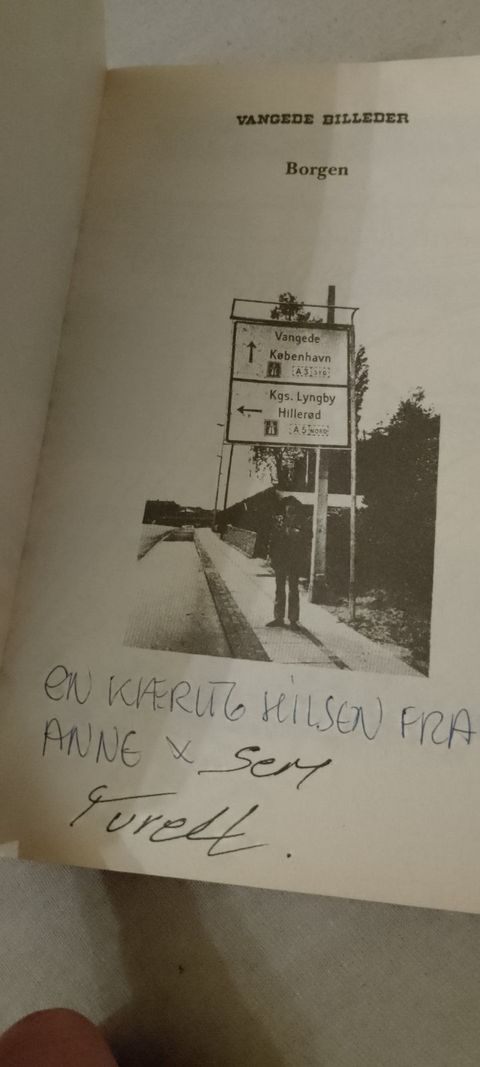 VANGEDE BILLEDER
Borgen
Vangede
København
A 5 SYD
Kgs. Lyngby
Hillerød
A 5 NORD
EN KÆRLIG HILSEN FRA
ANNE X
Turell.